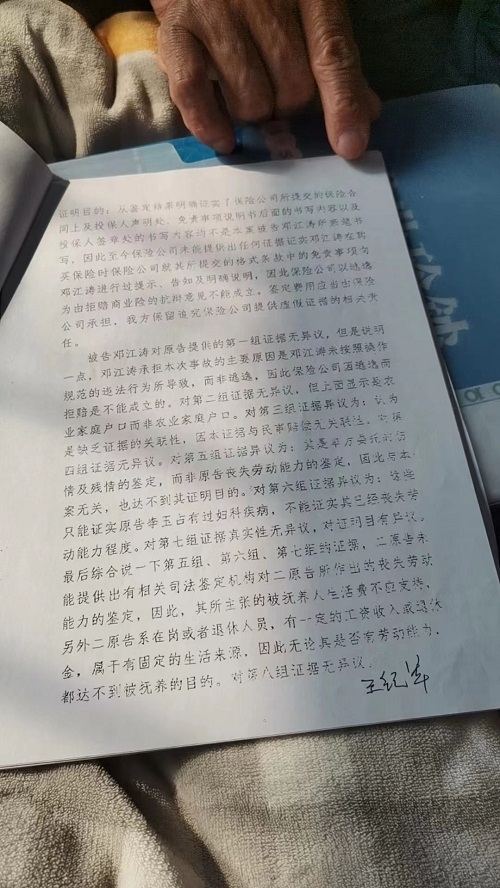 证明目的：从鉴定结果明确证实了保险公司所提交的保险合
同上及投保人声明处、免责事项说明书后面的书写内容以及
投保人签章处的书写内容均不是本案被告邓江涛所亲笔书
写，因此至今保险公司未能提供出任何证据证实邓江涛在购
买保险时保险公司就其所提交的格式条款中的免责事项向
邓江涛进行过提示、告知及明确说明，因此保险公司以逃逸
为由拒赔商业险的抗辩意见不能成立。鉴定费用应当由保险
公司承担，我方保留追究保险公司提供虚假证据的相关责
任。
被告邓江涛对原告提供的第一组证据无异议，但是说明
一点，邓江涛承担本次事故的主要原因是邓江涛未按照操作
规范的违法行为所导致，而非逃逸，因此保险公司因逃逸而
拒赔是不能成立的。对第二组证据无异议，但上面显示是农
业家庭户口而非农业家庭户。对第三组证据异议为：认为
是缺乏证据的关联性，因本证据与民事赔偿无关联性。对第
四组证据无异议。对第五组证据异议为：其是单方委托的伤
情及残情的鉴定，而非原告丧失劳动能力的鉴定，因此与本
案无关，也达不到其证明目的。对第六组证据异议为：该组
只能证实原告李玉占有过妇科疾病，不能证实其已经丧失劳
动能力程度。对第七组证据真实性无异议，对证明目有异议。
最后综合说一下第五组、第六组、第七组的证据，二原告未
能提供出有相关司法鉴定机构对二原告所作出的丧失劳动
能力的鉴定，因此，其所主张的被抚养人生活费不应支持，
另外二原告系在岗或者退休人员，有一定的工资收入或退休
金，属于有固定的生活来源，因此无论其是否有劳动能力，
都达不到被抚养的目的。对第八组证据无异议。
王纪